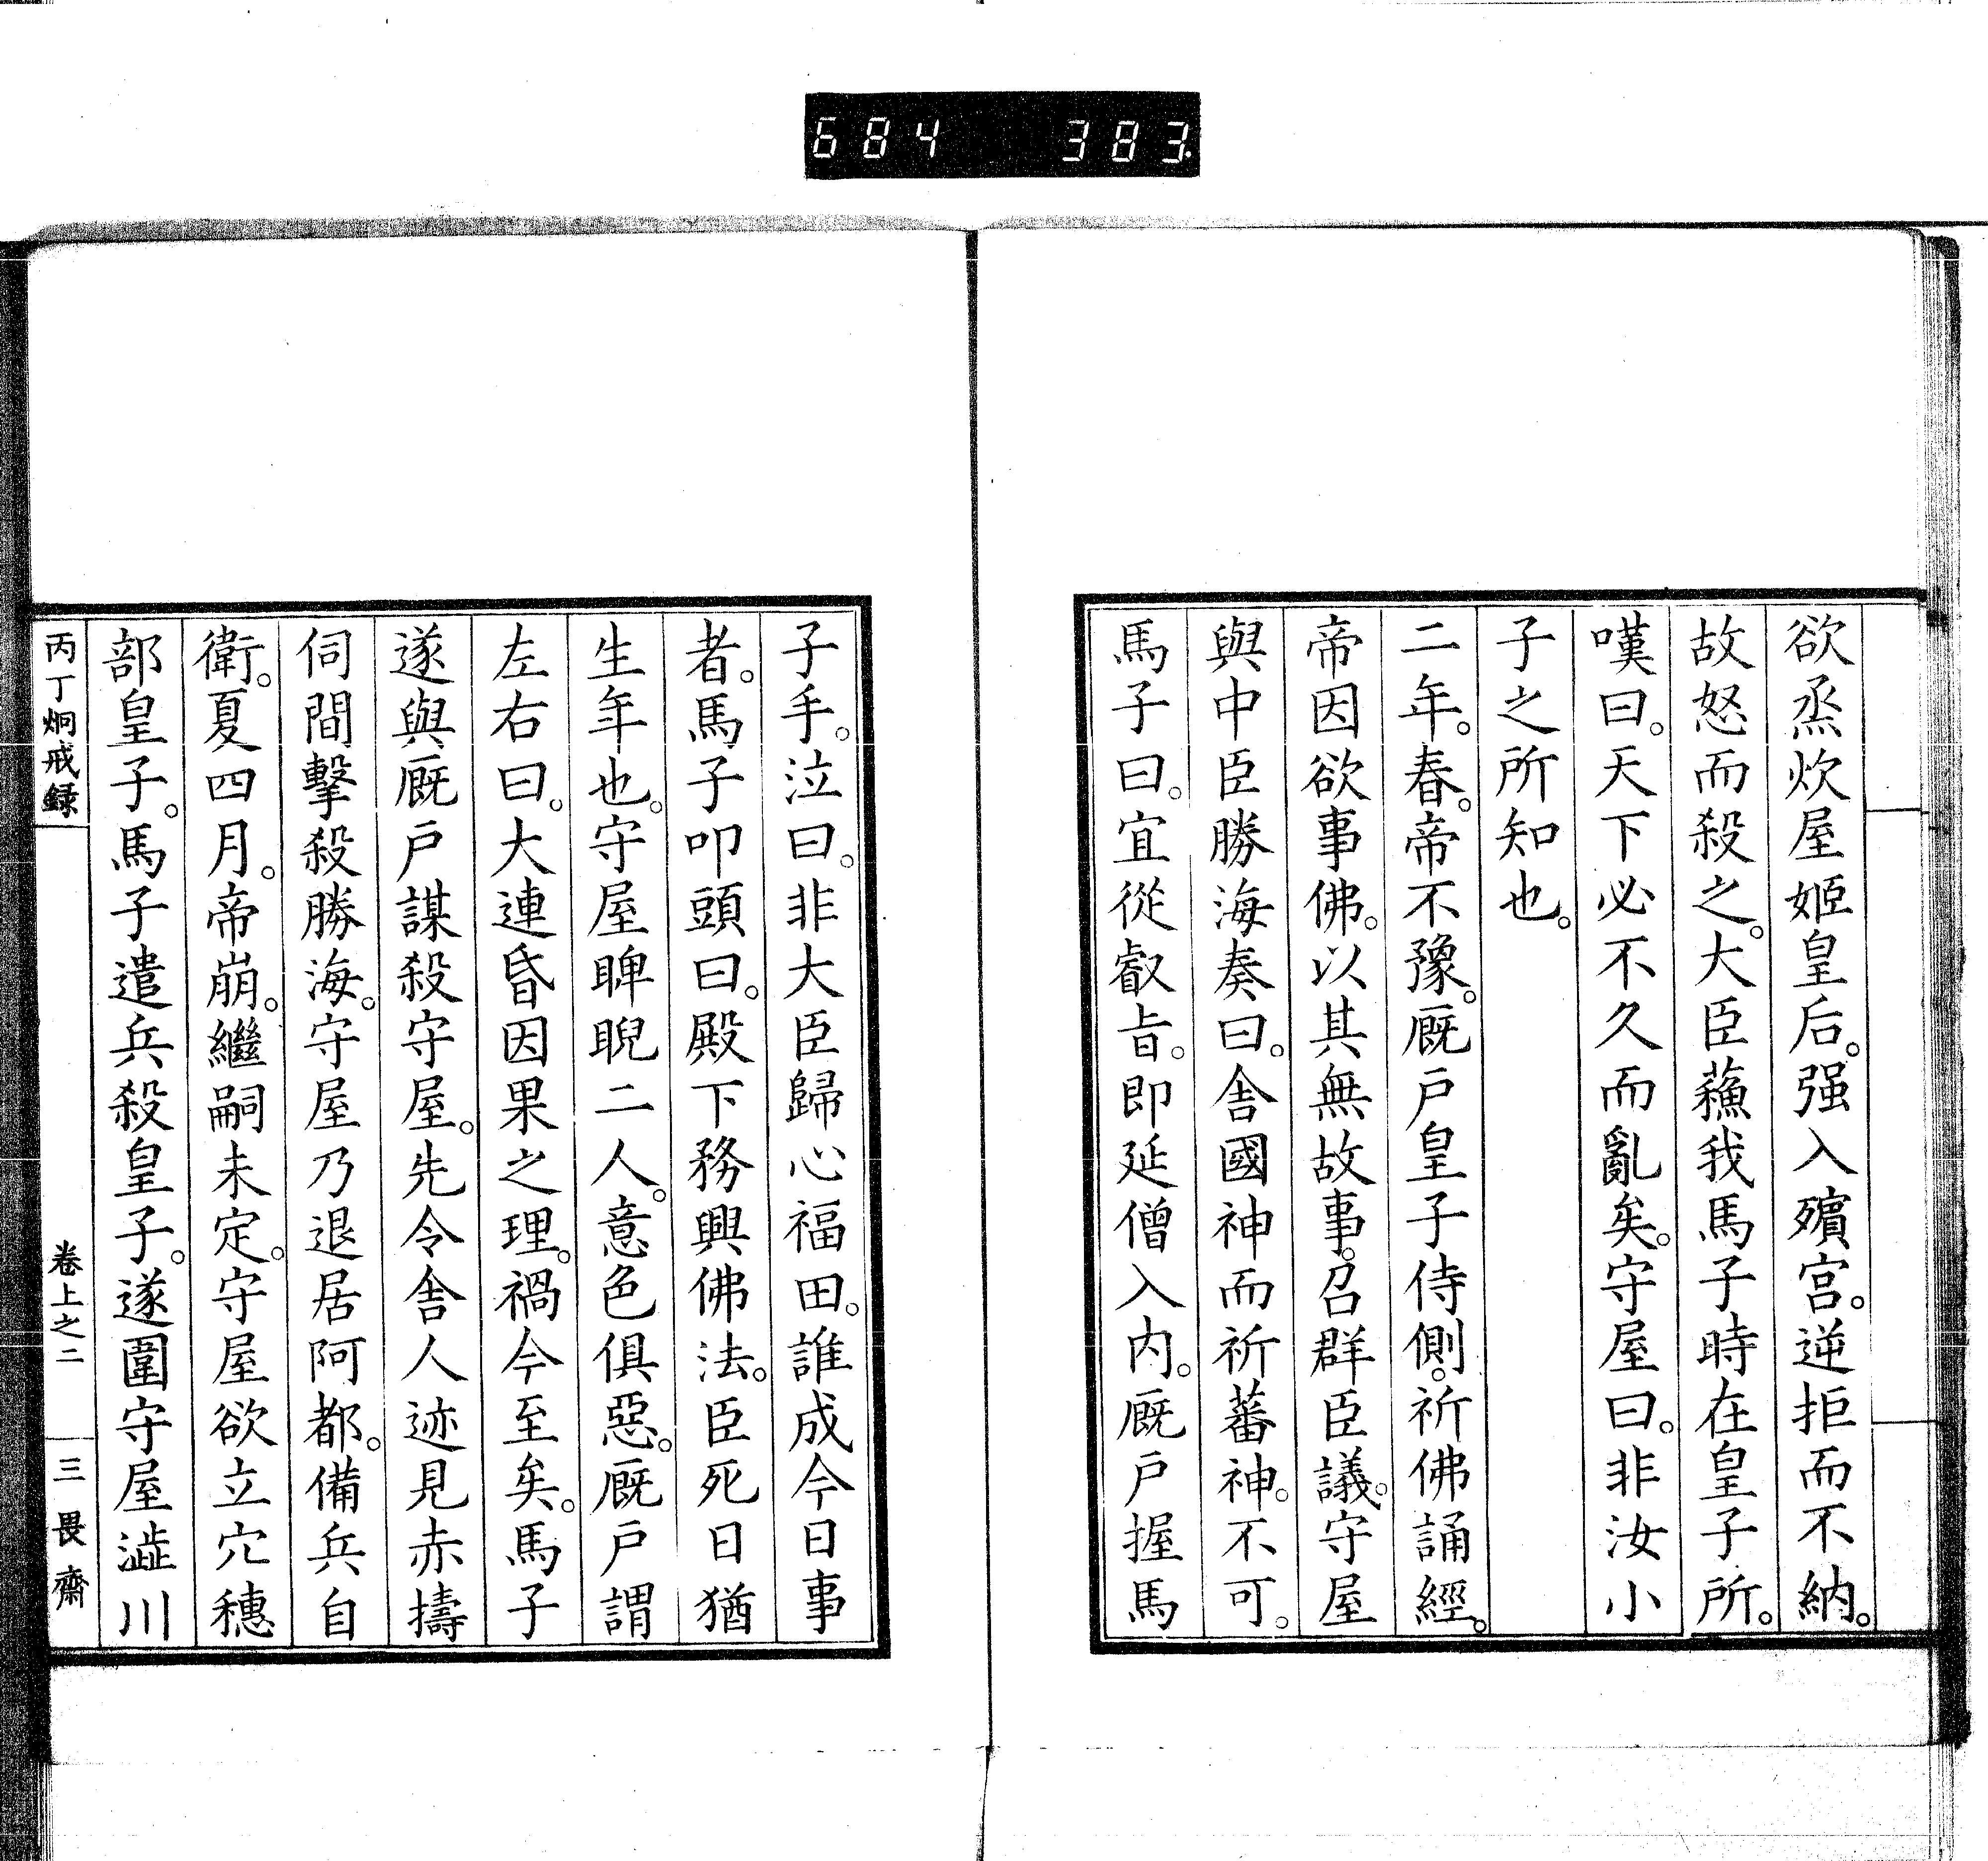 684 383.
欲烝炊屋姬皇后。强入殯宮。逆拒而不納。
故怒而殺之。大臣蘓我馬子時在皇子所。
嘆曰。天下必不久而亂矣。守屋曰。非汝小
子之所知也。
二年。春。帝不豫。厩戶皇子侍側。祈佛誦經。
帝因欲事佛。以其無故事。召群臣議。守屋
與中臣勝海奏曰。舍國神而祈蕃神。不可。
馬子曰。宜從叡旨。即延僧入内。厩戶握馬
子手。泣曰。非大臣歸心福田。誰成今日事
者。馬子叩頭曰。殿下務興佛法。臣死日猶
生年也。守屋睥睨二人。意色俱惡。厩戶謂
左右曰。大連昏因果之理。禍今至矣。馬子
遂與厩戶謀殺守屋。先令舍人迹見赤擣
伺間擊殺勝海。守屋乃退居阿都。備兵自
衛。夏四月。帝崩。繼嗣未定。守屋欲立穴穗
部皇子。馬子遣兵殺皇子。遂圍守屋澁川
丙丁炯戒録 卷上之二 三畏齋